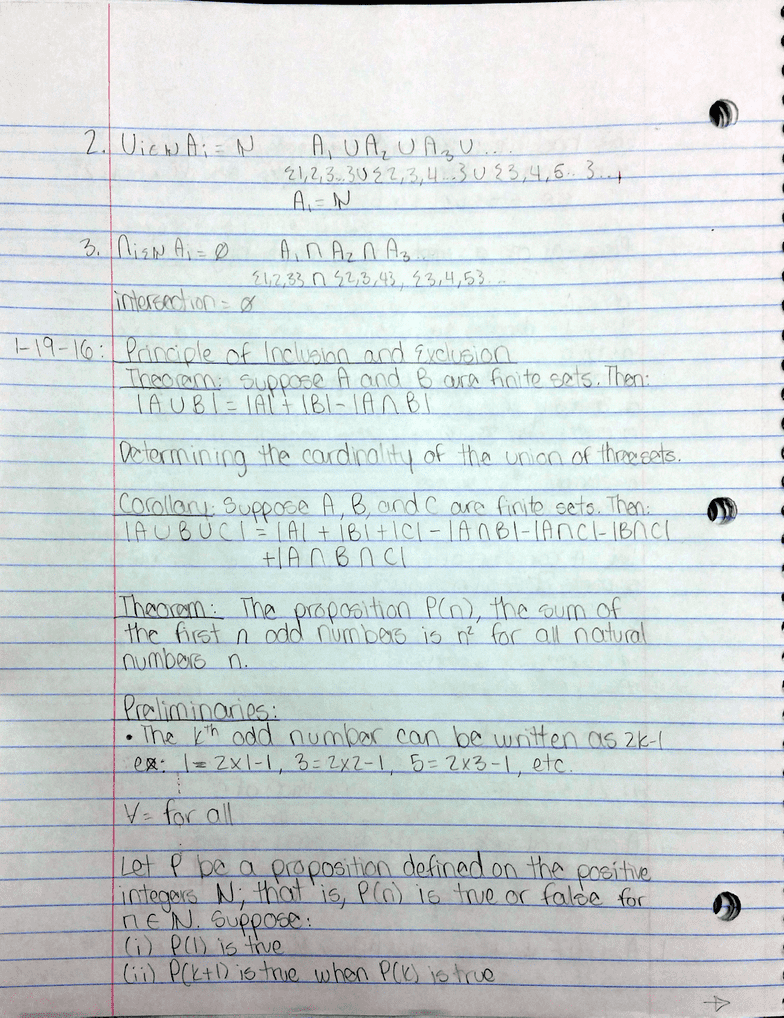 2. ∪i∈ℕ Ai = ℕ A₁ ∪ A₂ ∪ A₃ ∪ ....
{1,2,3...} ∪ {2,3,4...} ∪ {3,4,5...}...,
A₁ = ℕ
3. ∩i∈ℕ Ai = ∅ A₁ ∩ A₂ ∩ A₃...
{1,2,3} ∩ {2,3,4}, {3,4,5}...
intersection = ∅
1-19-16: Principle of Inclusion and Exclusion
Theorem: Suppose A and B are finite sets. Then:
|A ∪ B| = |A| + |B| - |A ∩ B|
Determining the cardinality of the union of three sets.
Corollary: Suppose A, B, and C are finite sets. Then:
|A ∪ B ∪ C| = |A| + |B| + |C| - |A ∩ B| - |A ∩ C| - |B ∩ C|
+ |A ∩ B ∩ C|
Theorem: The proposition P(n), the sum of
the first n odd numbers is n² for all natural
numbers n.
Preliminaries:
• The kᵗʰ odd number can be written as 2k-1
ex: 1 = 2x1-1, 3 = 2x2-1, 5 = 2x3-1, etc.
∀ = for all
Let P be a proposition defined on the positive
integers N; that is, P(n) is true or false for
n ∈ N. Suppose:
(i) P(1) is true
(ii) P(k+1) is true when P(k) is true
→